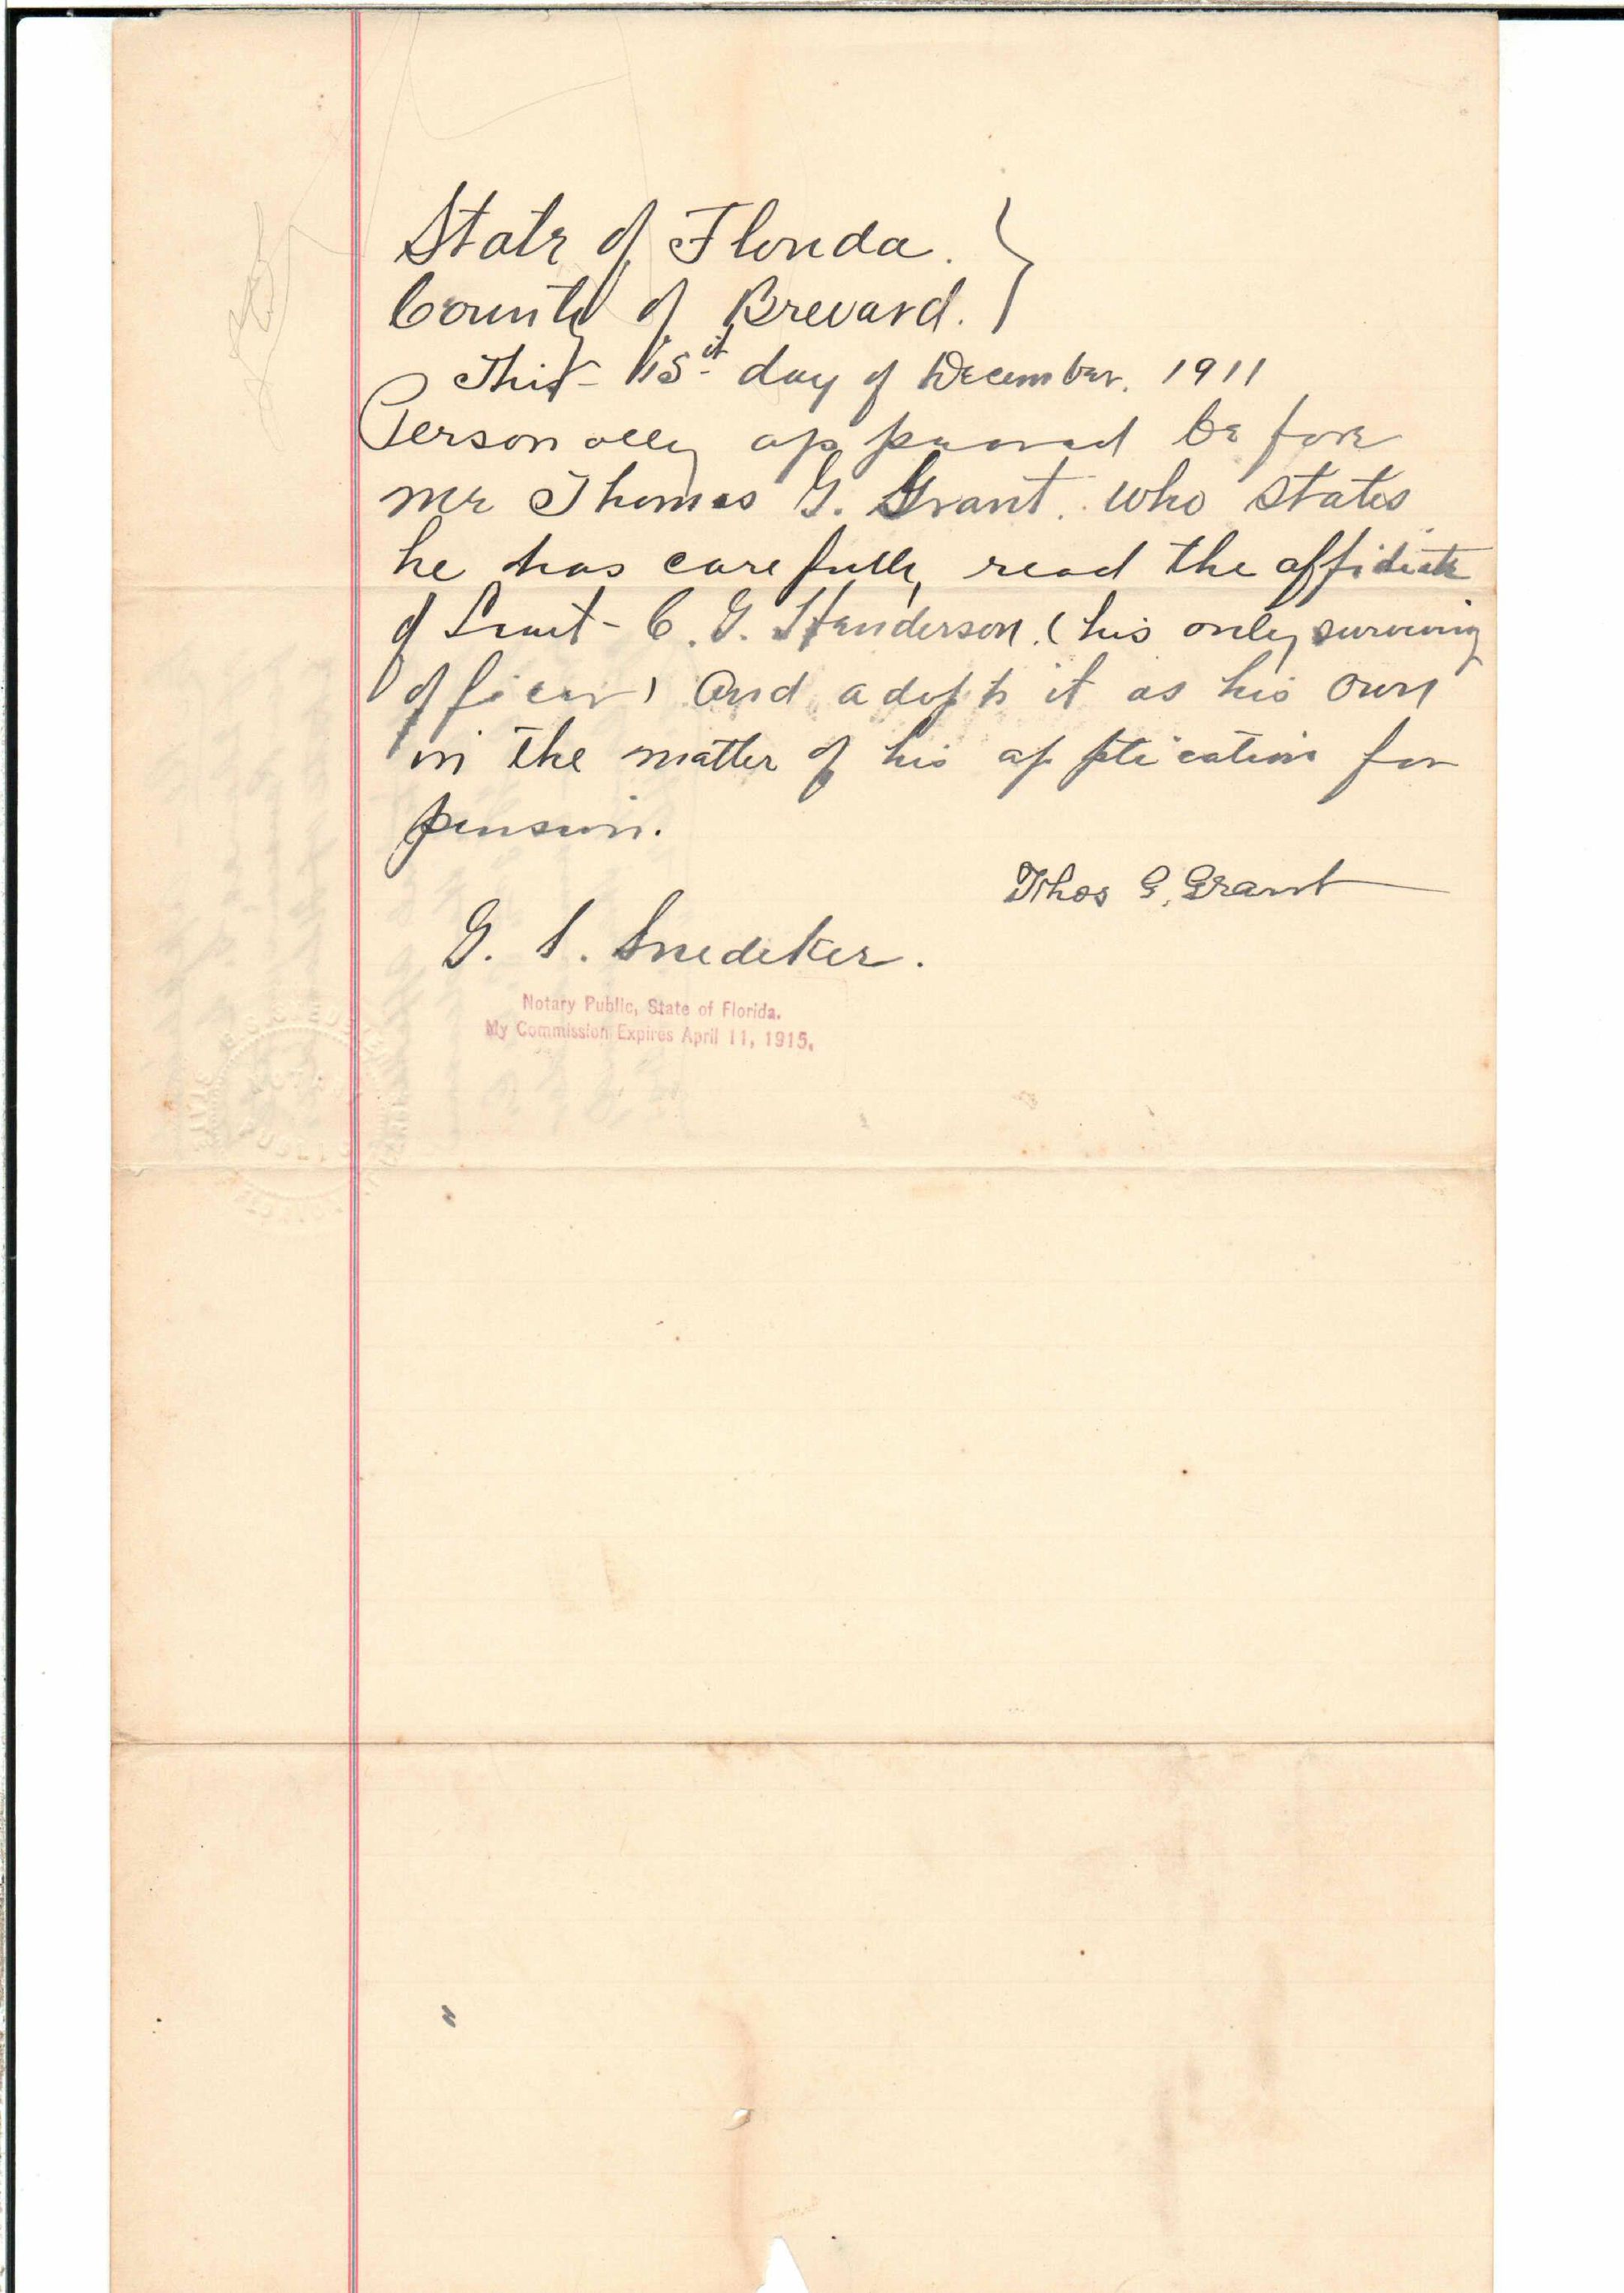 State of Florida.
County of Brevard.
This 15th day of December. 1911
Personally appeared before
me Thomas G. Grant. who states
he has carefully read the affidavit
of Lieut- C. G. Henderson. (his only surviving
officer) And adopts it as his own
in the matter of his application for
pension.
Thos G. Grant
G. S. Snedeker.
Notary Public, State of Florida.
My Commission Expires April 11, 1915.